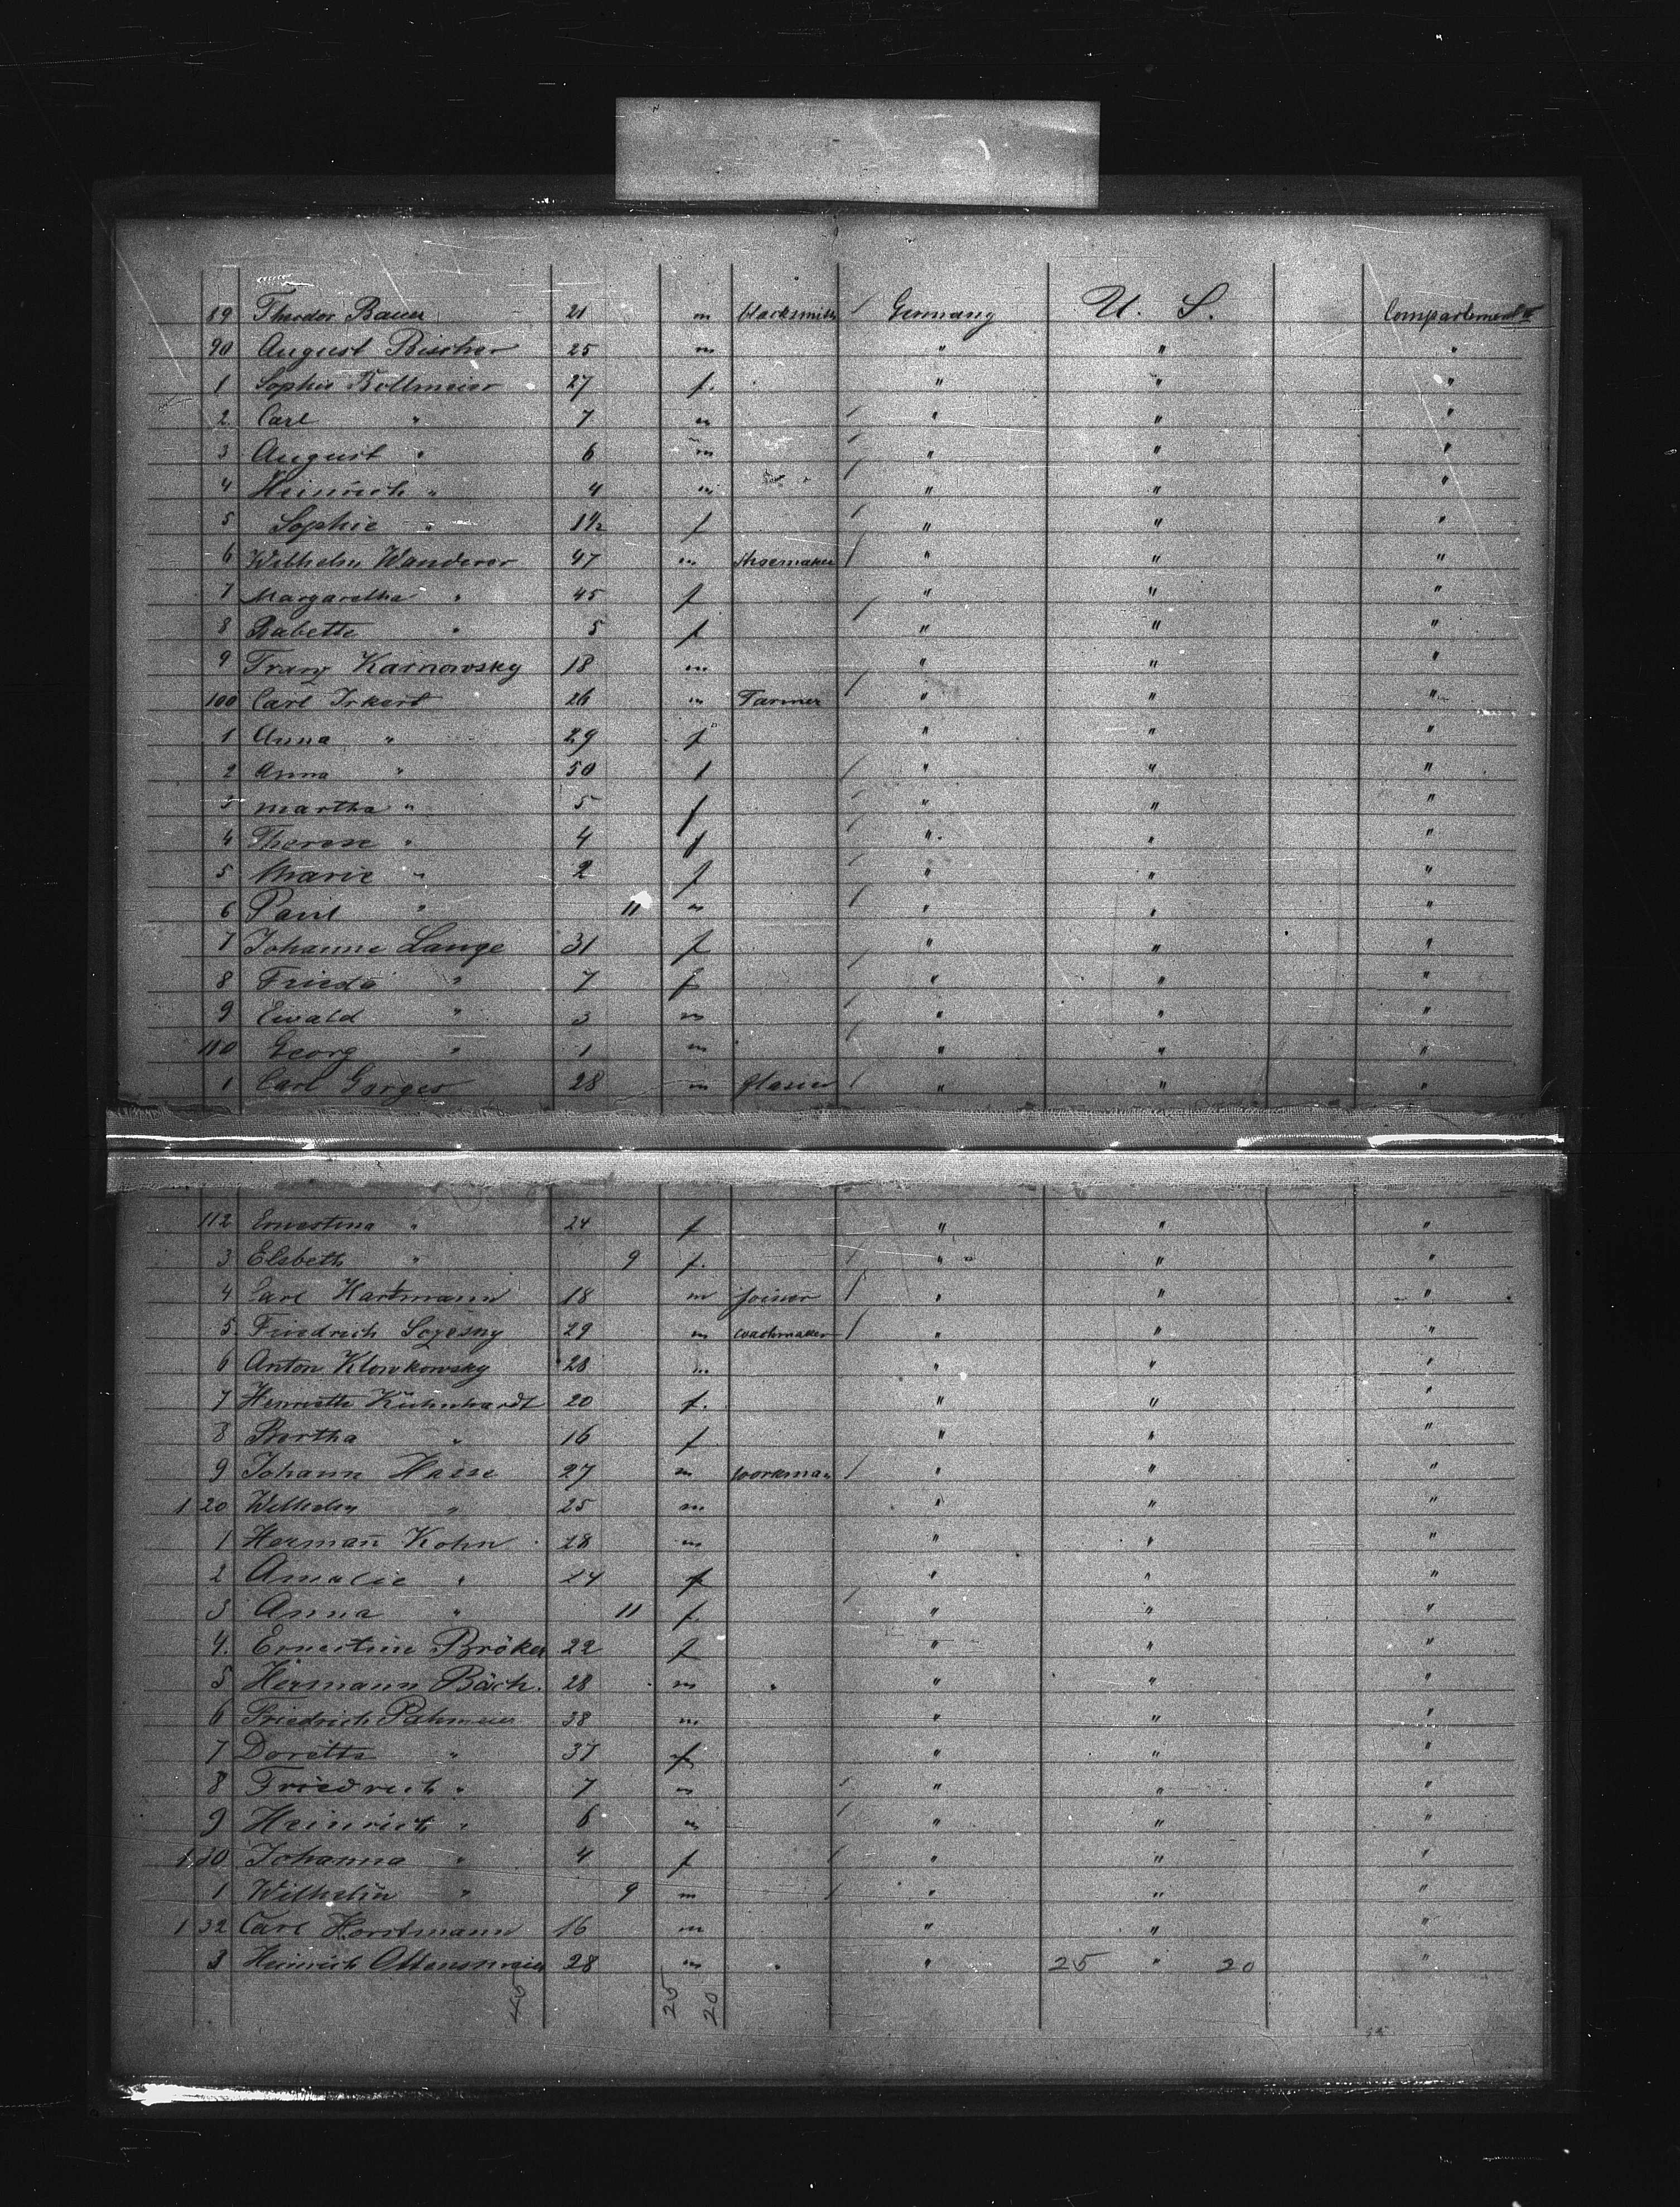 89 Theodor Bauer 21 m blacksmith Germany U. S. Compartement
90 August Bischer 25 m " " "
1 Sophie Bollmeier 27 f. " " "
2 Carl " 7 m " " "
3 August " 6 m " " "
4 Heinrich " 4 m " " "
5 Sophie " 1 1/2 f " " "
6 Wilhelm Wanderer 47 m " " "
7 Margaretha " 45 f " " "
8 Babette " 5 f " " "
9 Franz Karnowsky 18 m " " "
100 Carl Irkert 26 m Farmer " " "
1 Anna " 29 f " " "
2 Anna " 50 f " " "
3 Martha " 5 f " " "
4 Therese " 4 f " " "
5 Marie " 2 f " " "
6 Paul " 11 m " " "
7 Johanne Lange 31 f " " "
8 Frieda " 7 f " " "
9 Ewald " 3 m " " "
110 Georg " 1 m " " "
1 Carl Gorges 28 m glasier " " "
112 Ernestina " 24 f " " "
3 Elsbeth " 9 f. " " "
4 Carl Hartmann 18 m joiner " " "
5 Friedrich Sczesny 29 m coachmaker " " "
6 Anton Klowkowsky 28 m " " "
7 Henriette Kuhnhardt 20 f. " " "
8 Bertha " 16 f " " "
9 Johann Hasse 27 m workman " " "
120 Wilhelm " 25 m " " "
1 Hermañ Kohn 28 m " " "
2 Amalie " 24 f " " "
3 Anna " 11 f. " " "
4. Ernestine Bröker 22 f " " "
5 Hermann Bäch. 28 m " " "
6 Friedrich Pahmeier 38 m " " "
7 Dorette " 37 f " " "
8 Friedrich " 7 m " " "
9 Heinrich " 6 m " " "
130 Johanna " 4 f " " "
1 Wilhelm " 9 m " " "
132 Carl Horstmann 16 m " " "
3 Heinrich Ottensmeier 28 m " 25 " 20 "
45 25 20